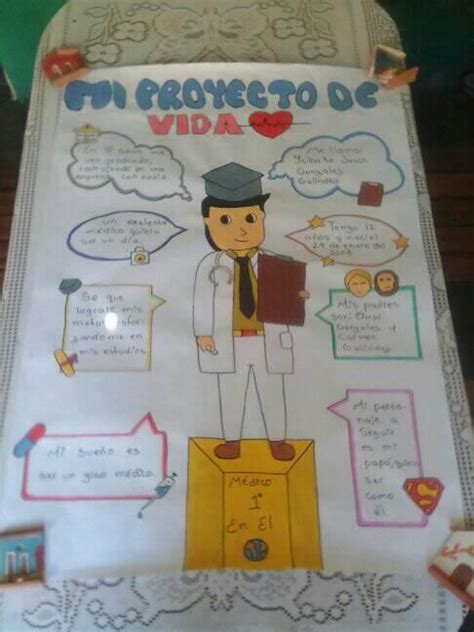 MI PROYECTO DE
VIDA
En 10 años me
veo graduado,
trabajando en una
empresa con novia
Me llamo:
Jesus
Gonzales
Galindez
Un excelente
médico quiero
ser un día.
Tengo 12
años y nací el
29 de enero del
Se que
lograre mis
metas esfor-
zandome en
mis estudios
Mis padres
son: Omar
Gonzales y
Carmen
Galindez
Mi sueño es
ser un gran médico.
Mi perso-
naje a
seguir
es mi
papá, quiero
ser
como
él
Médico
1°
En El